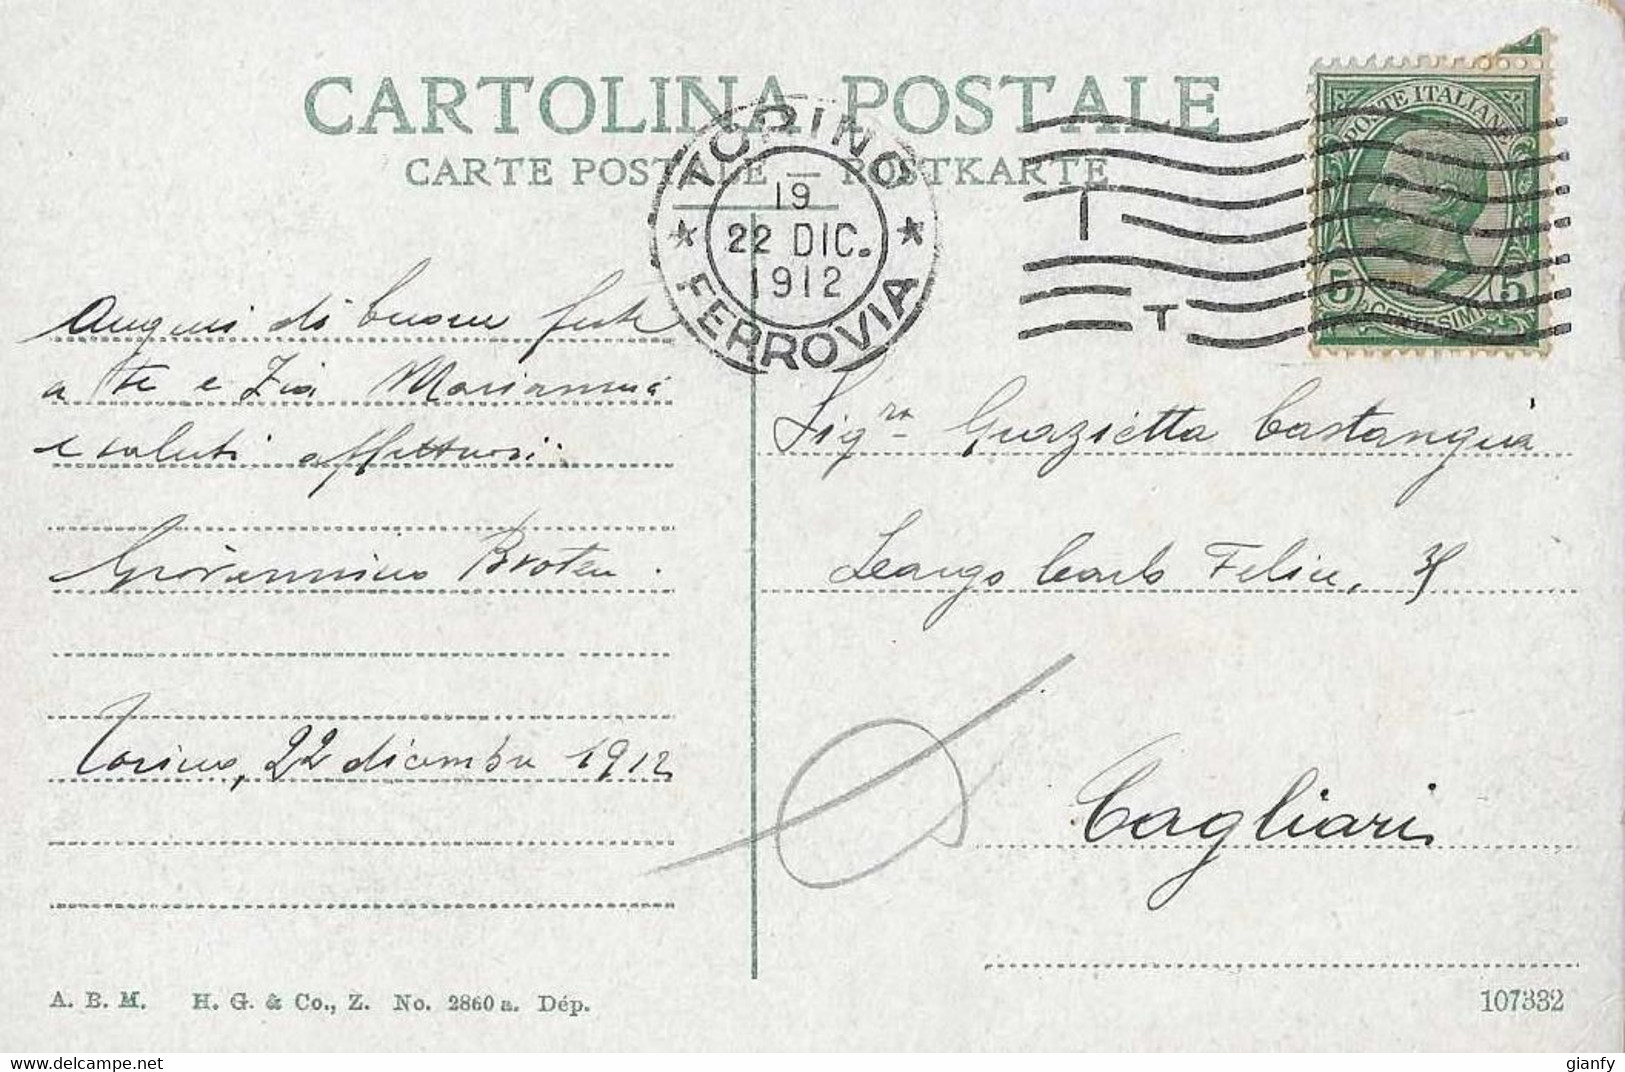 CARTOLINA POSTALE
CARTE POSTALE — POSTKARTE
TORINO
19
22 DIC.
1912
FERROVIA
POSTE ITALIANE
5 CENTESIMI 5
Auguri di buone feste
a te e Zia Marianna
e saluti affettuosi
Giovannino
Torino, 22 dicembre 1912
Sig.ra Grazietta Castangia
Largo Carlo Felice,
Cagliari
A. B. M. H. G. & Co., Z. No. 2860 a. Dép.
107332
gianfy